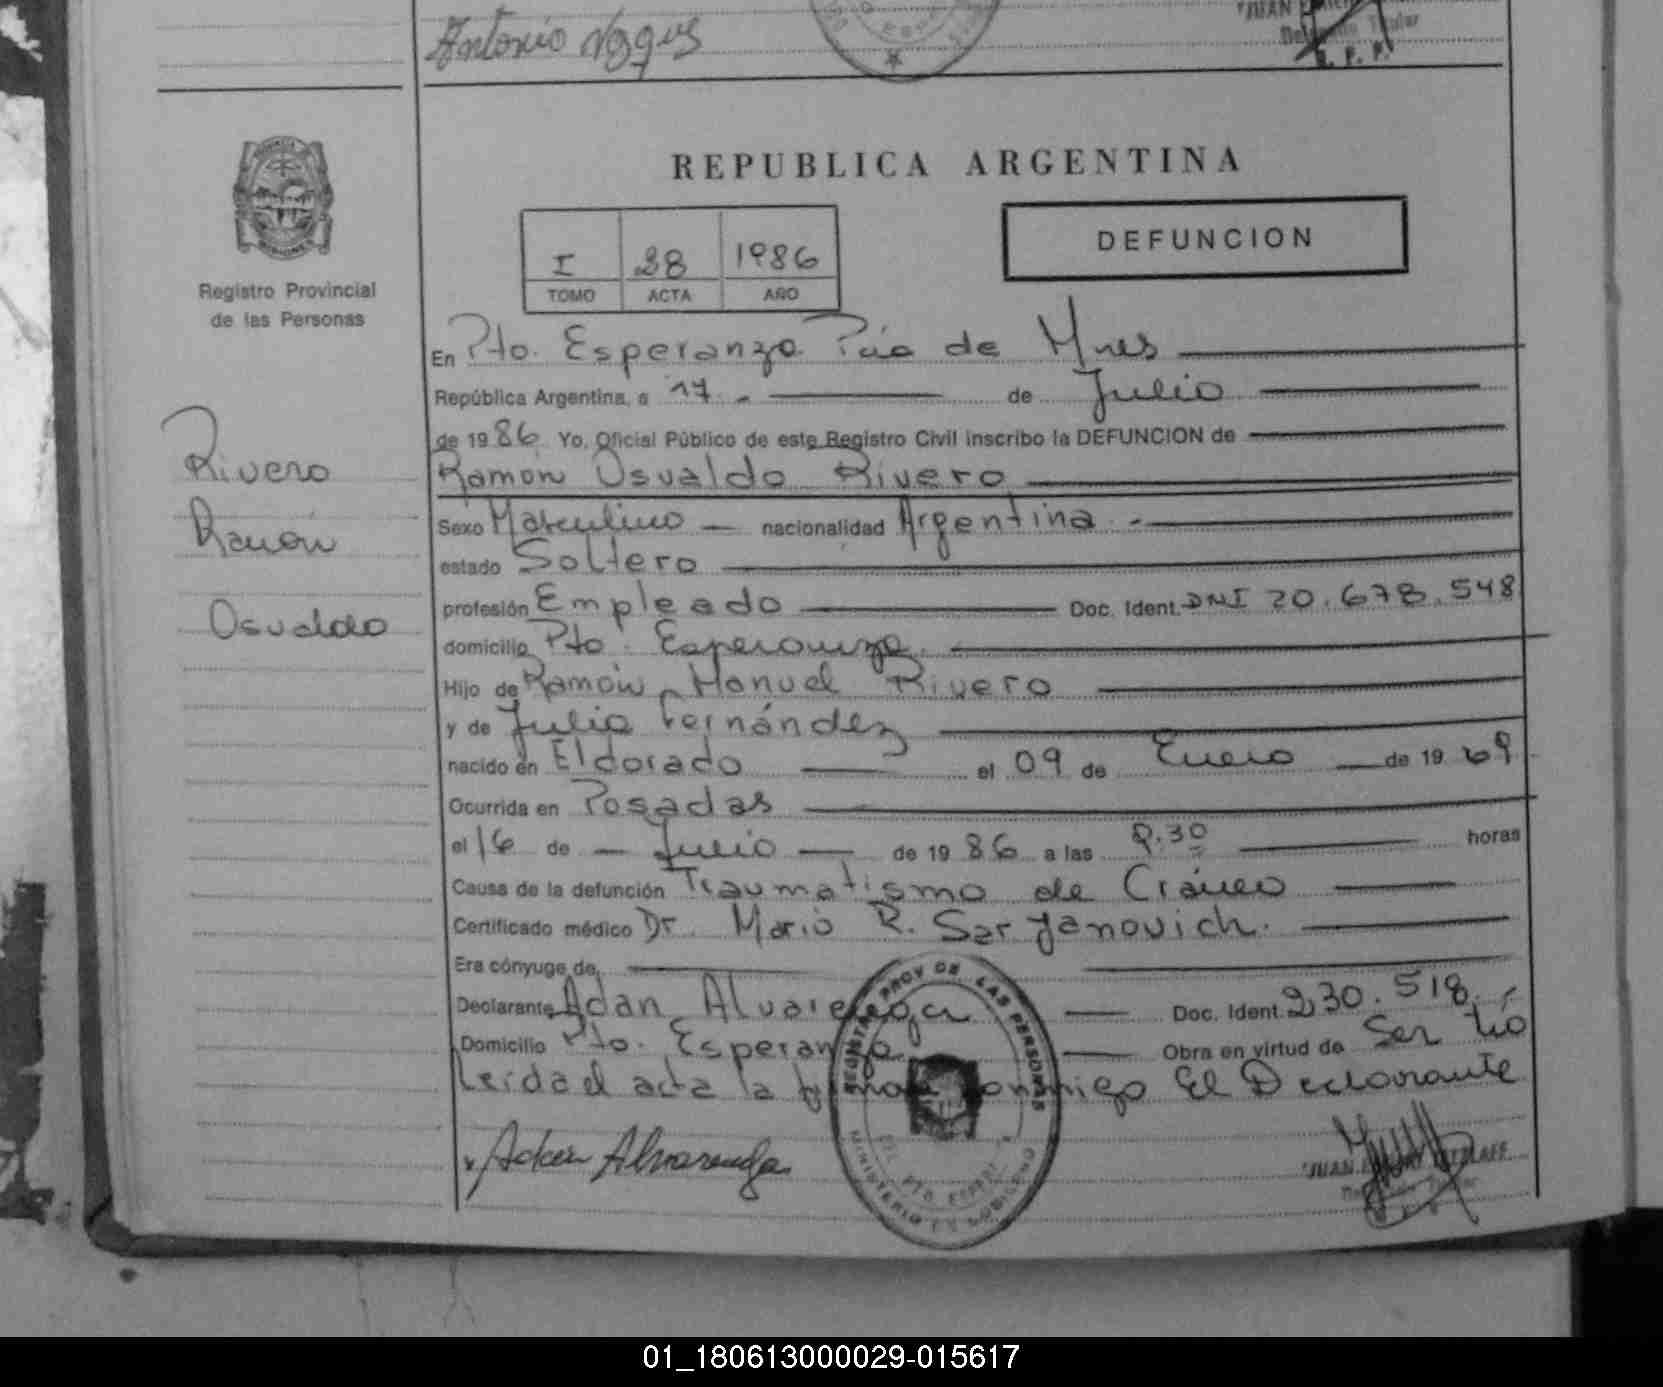 Antonio
REPUBLICA ARGENTINA
I 28 1986
TOMO ACTA AÑO
DEFUNCION
Registro Provincial
de las Personas
Rivero
Ramón
Osvaldo
En Pto. Esperanza Pcia de Mnes
República Argentina, a 17 de Julio
de 1986 Yo, Oficial Público de este Registro Civil inscribo la DEFUNCION de
Ramón Osvaldo Rivero
Sexo Masculino nacionalidad Argentina
estado Soltero
profesión Empleado Doc. Ident. DNI 20.678.548
domicilio Pto. Esperanza
Hijo de Ramón Manuel Rivero
y de Julia Fernández
nacido en Eldorado el 09 de Enero de 1969
Ocurrida en Posadas
el 16 de Julio de 1986 a las horas
Causa de la defunción Traumatismo de Cráneo
Certificado médico Dr. Mario R. Saryanovich.
Era cónyuge de
Declarante Adan Alvarenga Doc. Ident. 230.518
Domicilio Pto. Esperanza Obra en virtud de Ser tío
Leída el acta la firma conmigo El Declarante
Adan Alvarenga
REGISTRO PROV DE LAS PERSONAS
MINISTERIO DE GOBIERNO
JUAN
01_180613000029-015617